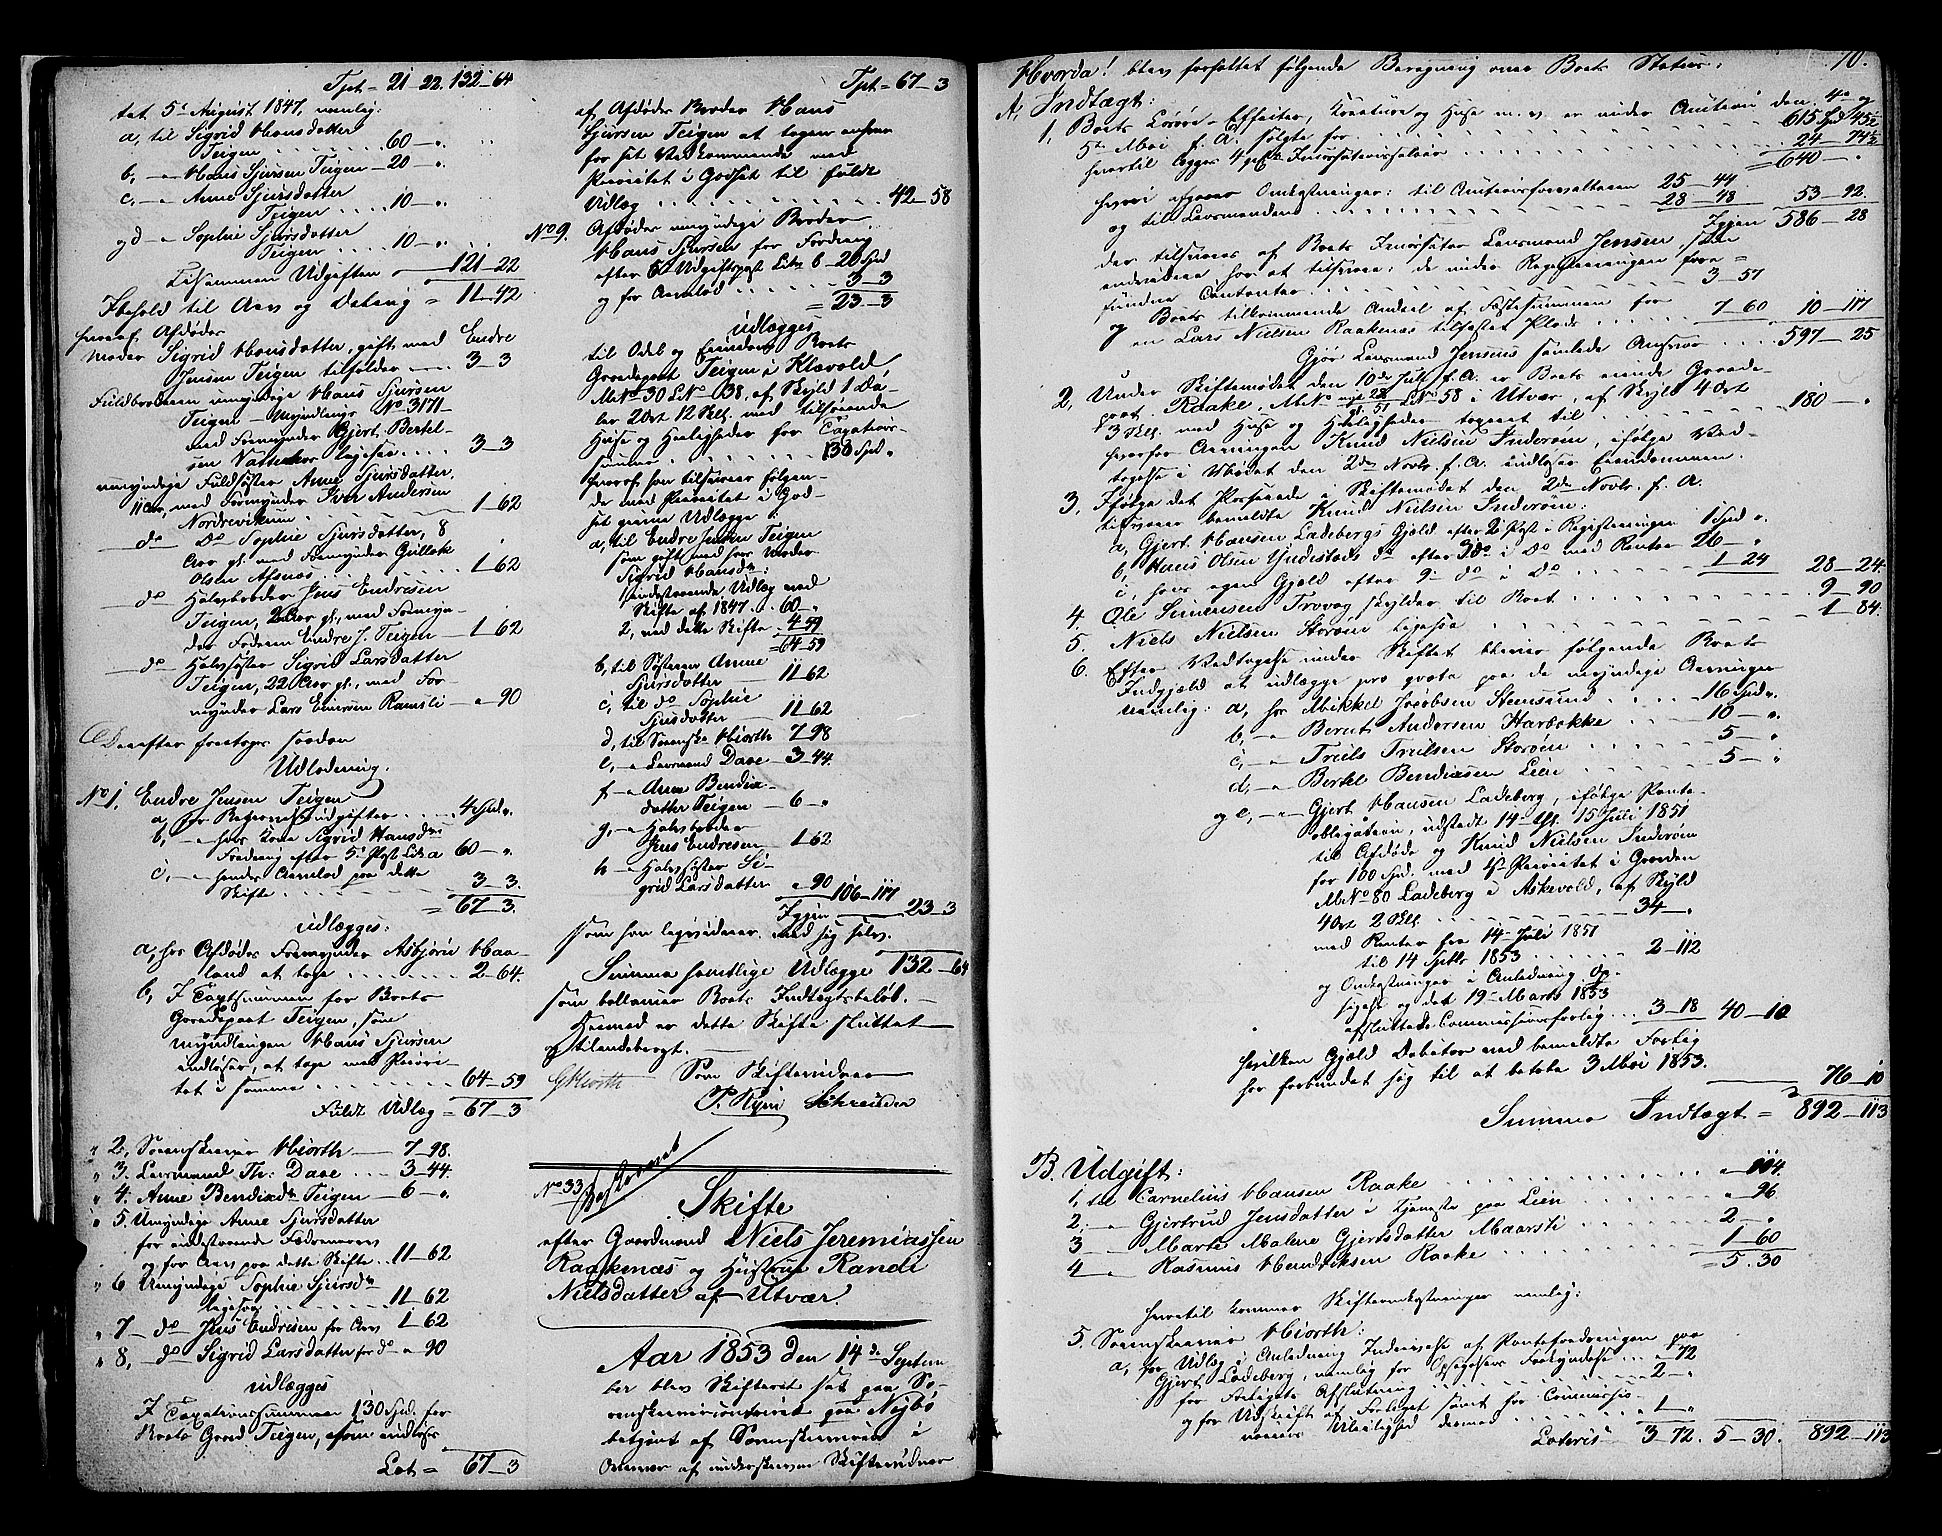 Tpt = 21 - 22. 132 - 64
tet 5t August 1847, nemlig:
a, til Sigrid Hansdatter
Teigen . . . . . . 60 - "
b, - " Hans Sjursen Teigen - 20 - "
c, - " Anne Sjursdatter
Teigen . . . . 10 - "
og d - " Sophie Sjursdatter
Teigen . . . . 10 - "
Tilsammen Udgiften - 121 - 22
Ibehold til Arv og Deling = 11 - 42
hvoraf Afdødes
Moder Sigrid Hansdatter, gift med Endre
Jensen Teigen tilfalder — 3 - 3
Fuldbroderen umyndige Hans Sjursen
Teigen - Myndlings No 3171 -
med Formynder Gjert Bertel-
sen ligesaa . . . . 3 - 3
umyndige Fuldsøster Anne Sjursdatter,
11 Aar, med Formynder Iver Andersen
Nordrevik . . . . 1 - 62
— do Do Sophie Sjursdatter, 8
Aar gl. med Formynder Gullak
Olsen Afsnæs . . . . 1 - 62
— do Halvbroder Jens Endresen
Teigen, 2 Aar gl., med Formyn-
der Faderen Endre J. Teigen — 1 - 62
— do Halvsøster Sigrid Larsdatter
Teigen, 22 Aar gl., med For-
mynder Lars Einersen Ramsli - " 90
Derefter foretoges saadan
Udlodning.
No 1. Endre Jensen Teigen
a, for Begravelsesudgifter . . . . 4 Spd ".
b, - " hans Kone Sigrid Hansdtr
Fordring efter 5t Post Litr a 60 - "
c, - " hendes Arvelod paa dette
Skifte . . . . 3 - 3.
= 67 - 3.
udlægges:
a, hos Afdødes Formynder Asbjørn Haa-
land at tage . . . . 2 - 64.
b, I Taxtsummen for Boets
Gaardepart Teigen, som
Myndlingen Hans Sjursen
indløser, at tage med Priori-
tet i samme . . . . 64 - 59
Fuldt Udlæg = 67 - 3
" 2, Sorenskriver Hiorth — 7 - 98.
" 3. Lensmand Th: Daae — 3 - 44.
" 4. Anne Bendixdtr Teigen — 6 - "
" 5. Umyndige Anne Sjursdatter
for indestaaende Fædrenearv
og for Arv paa dette Skifte . . 11 - 62
" 6 Umyndige Sophie Sjursdtr
ligesaa . . . . 11 - 62
" 7 - do Jens Endresen for Arv 1 - 62
" 8, - do Sigrid Larsdatter for do " 90
udlægges
I Taxationssummen 130 Spd. for
Boets Gaard Teigen, som indløses
Lat = 67 - 3
Tpt = 67 - 3
af Afdødes Broder Hans
Sjursen Teigen at tages
for sit Vedkommende med
Prioritet i Godset til fulde
Udlæg . . . . 42 - 58
No 9. Afdødes umyndige Broder
Hans Sjursen for Fordring
efter 5t Udgiftspost Litr b - 20 Spd
og for Arvelod . . . . 3 - 3
= 23 - 3
udlægges
til Odel og Eiendom Boets
Gaardepart Teigen i Klævold
M No 30 L No 38, af Skyld 1 Da-
ler 2 Ort 12 Skl. med tilhørende
Huse og Herligheder for Taxations-
summen . . . . 130 Spd "
hvoraf han tilsvarer følgen-
de med Prioritet i God-
set givne Udlægge:
a, til Endre Jensen Teigen
som gift med hans Moder
Sigrid Hansdtr:
indestaaende Udlæg ved
Skifte af 1847 . . 60 - "
2, ved dette Skifte . 4 - 59
= 64 - 59
b, til Søsteren Anne
Sjursdatter — 11 - 62
c, til do Sophie
Sjursdatter — 11 - 62
d, til Sorenskr. Hiorth 7 - 98
e, - " Lensmand Daae - 3 - 44.
f - " Anne Bendix-
datter Teigen — 6 - "
g, - " Halvbroder
Jens Endresen — 1 - 62
h - " Halvsøster Si-
grid Larsdatter " 90 106 - 117
Igjen — 23 - 3
som han liqviderer med sig selv.
Summa samtlige Udlægge 132 - 64
som ballancerer Boets Indtægtsbeløb. —
Hermed er dette Skifte sluttet
og tilendebragt. —
GHiorth Som Skiftevidner
P. Ryin Schreuder
No 33
Skifte
efter Gaardmand Niels Jeremiassen
Raakenæs og Hustrue Randi
Nielsdatter af Utvær.
Aar 1853 den 14de Septem-
ber blev Skifteret sat paa So-
renskrivercontoiret paa Nybø
betjent af Sorenskriveren i
Overvær af underskrevne Skiftevidner
70.
Hvorda! blev forfattet følgende Beregning over Boets Status:
A, Indtægt:
1, Boets Løsøre-Effecter, Creature og Huse m. v. er under Auction den 4de og
5te Mai f. A. solgte for . . . . 615 Spd 45½
hvortil lægges 4 pCt Inqvisitionssalair . . . . 24 - 74½
= 640 - "
hvori afgaaer Omkostninger: til Auctionsforvalteren 25 - 44
og til Lensmanden . . . . 28 - 48 53 - 92.
Igjen 586 - 28
der tilsvares af Boets Incassator Lensmand Jensen, som
endvidere har at tilsvare: de under Registreringen fore-
fundne Contanter . . . . 3 - 57
og Boets tilkommende Andeel af Fæstesummen for
en Lars Nielsen Raakenæs tilfæstet Plads . . . . 7 - 60 10 - 117
Gjør Lensmand Jensens samlede Ansvar . . . . 597 - 25
2, Under Skiftemødet den 10de Juli f. A. er Boets eiende Gaarde-
part Raake, M No nye 22 gl. 51 L No 58 i Utvær, af Skyld 4 Ort
3 Skl. med Huse og Herligheder taxeret til . . . . 180 - "
hvorfor Arvingen Knud Nielsen Inderøen, ifølge Ved-
tagelse i Mødet den 2den Novbr. f. A. indløser Eiendommen.
3, Ifølge det Passerede i Skiftemødet den 2den Novbr. f. A.
tilsvarer bemeldte Knud Nielsen Inderøen:
a, Gjert Hansen Ladebergs Gjæld efter 2d Post i Registreringen 1 Spd ".
b, Hans Olsen Yndestads do efter 3do i do med Renter 26 - "
c, hans egen Gjæld efter 9 - do i do . . . . 1 - 24 28 - 24.
4, Ole Simensen Trovaag skylder til Boet . . . . 9 - 90
5. Niels Nielsen Storøen ligesaa . . . . 1 - 84.
6. Efter Vedtagelse under Skiftet bliver følgende Boets
Indgjæld at udlægge pro qvota paa de myndige Arvinger
nemlig: a, hos Mikkel Jacobsen Steensund . . . . 16 Spd ".
b, - " Bernt Andersen Harbakke . . . . 10 - ".
c, - " Truls Trulsen Storøen . . . . 5 - "
d, - " Bertel Bendixsen Lien . . . . 5 - "
og e, - " Gjert Hansen Ladeberg, ifølge Pante-
obligation, udstedt 14 - th. 15 Juli 1851
til Afdøde og Knud Nielsen Inderøen
for 100 Spd. med 1ste Prioritet i Gaarden
M No 80 Ladeberg i Askevold, af Skyld
4 Ort 2 Skl. . . . . 34 - "
med Renter fra 14 - Juli 1851
til 14 Septbr 1853 . . . . 2 - 112
og Omkostninger i Anledning Op-
sigelse og det 19 - Marts 1853
afsluttede Commissionsforlig . . . 3 - 18 40 - 10
hvilken Gjæld Debitor ved bemeldte Forlig
har forbundet sig til at betale 3 Mai 1853. 76 - 10
Summa Indtægt = 892 - 113
B. Udgift:
1, til Carnelius Hansen Raake . . . . " - 114.
2, - " Gjertrud Jensdatter i Tjeneste paa Lien . . . . " 96
3 - " Marte Malene Gjertsdatter Maarsti . . . . 2 - "
4 - " Rasmus Hendriksen Raake . . . . 1 - 60
= 5 . 30
hvortil kommer Skifteomkostninger nemlig:
5. Sorenskriver Hiorth:
a, for Udlæg i Anledning Inddrivelse af Pantefordringen paa
Gjert Ladeberg, nemlig for Opsigelsens Forkyndelse . . . " 72
for Forligets Afslutning . . . . 2 - ".
og for Udskrift af Forliget samt for Commissio-
nairens Uleilighed dermed . . . . 1 - "
Lateris 3 - 72. 5 - 30. 892 - 113